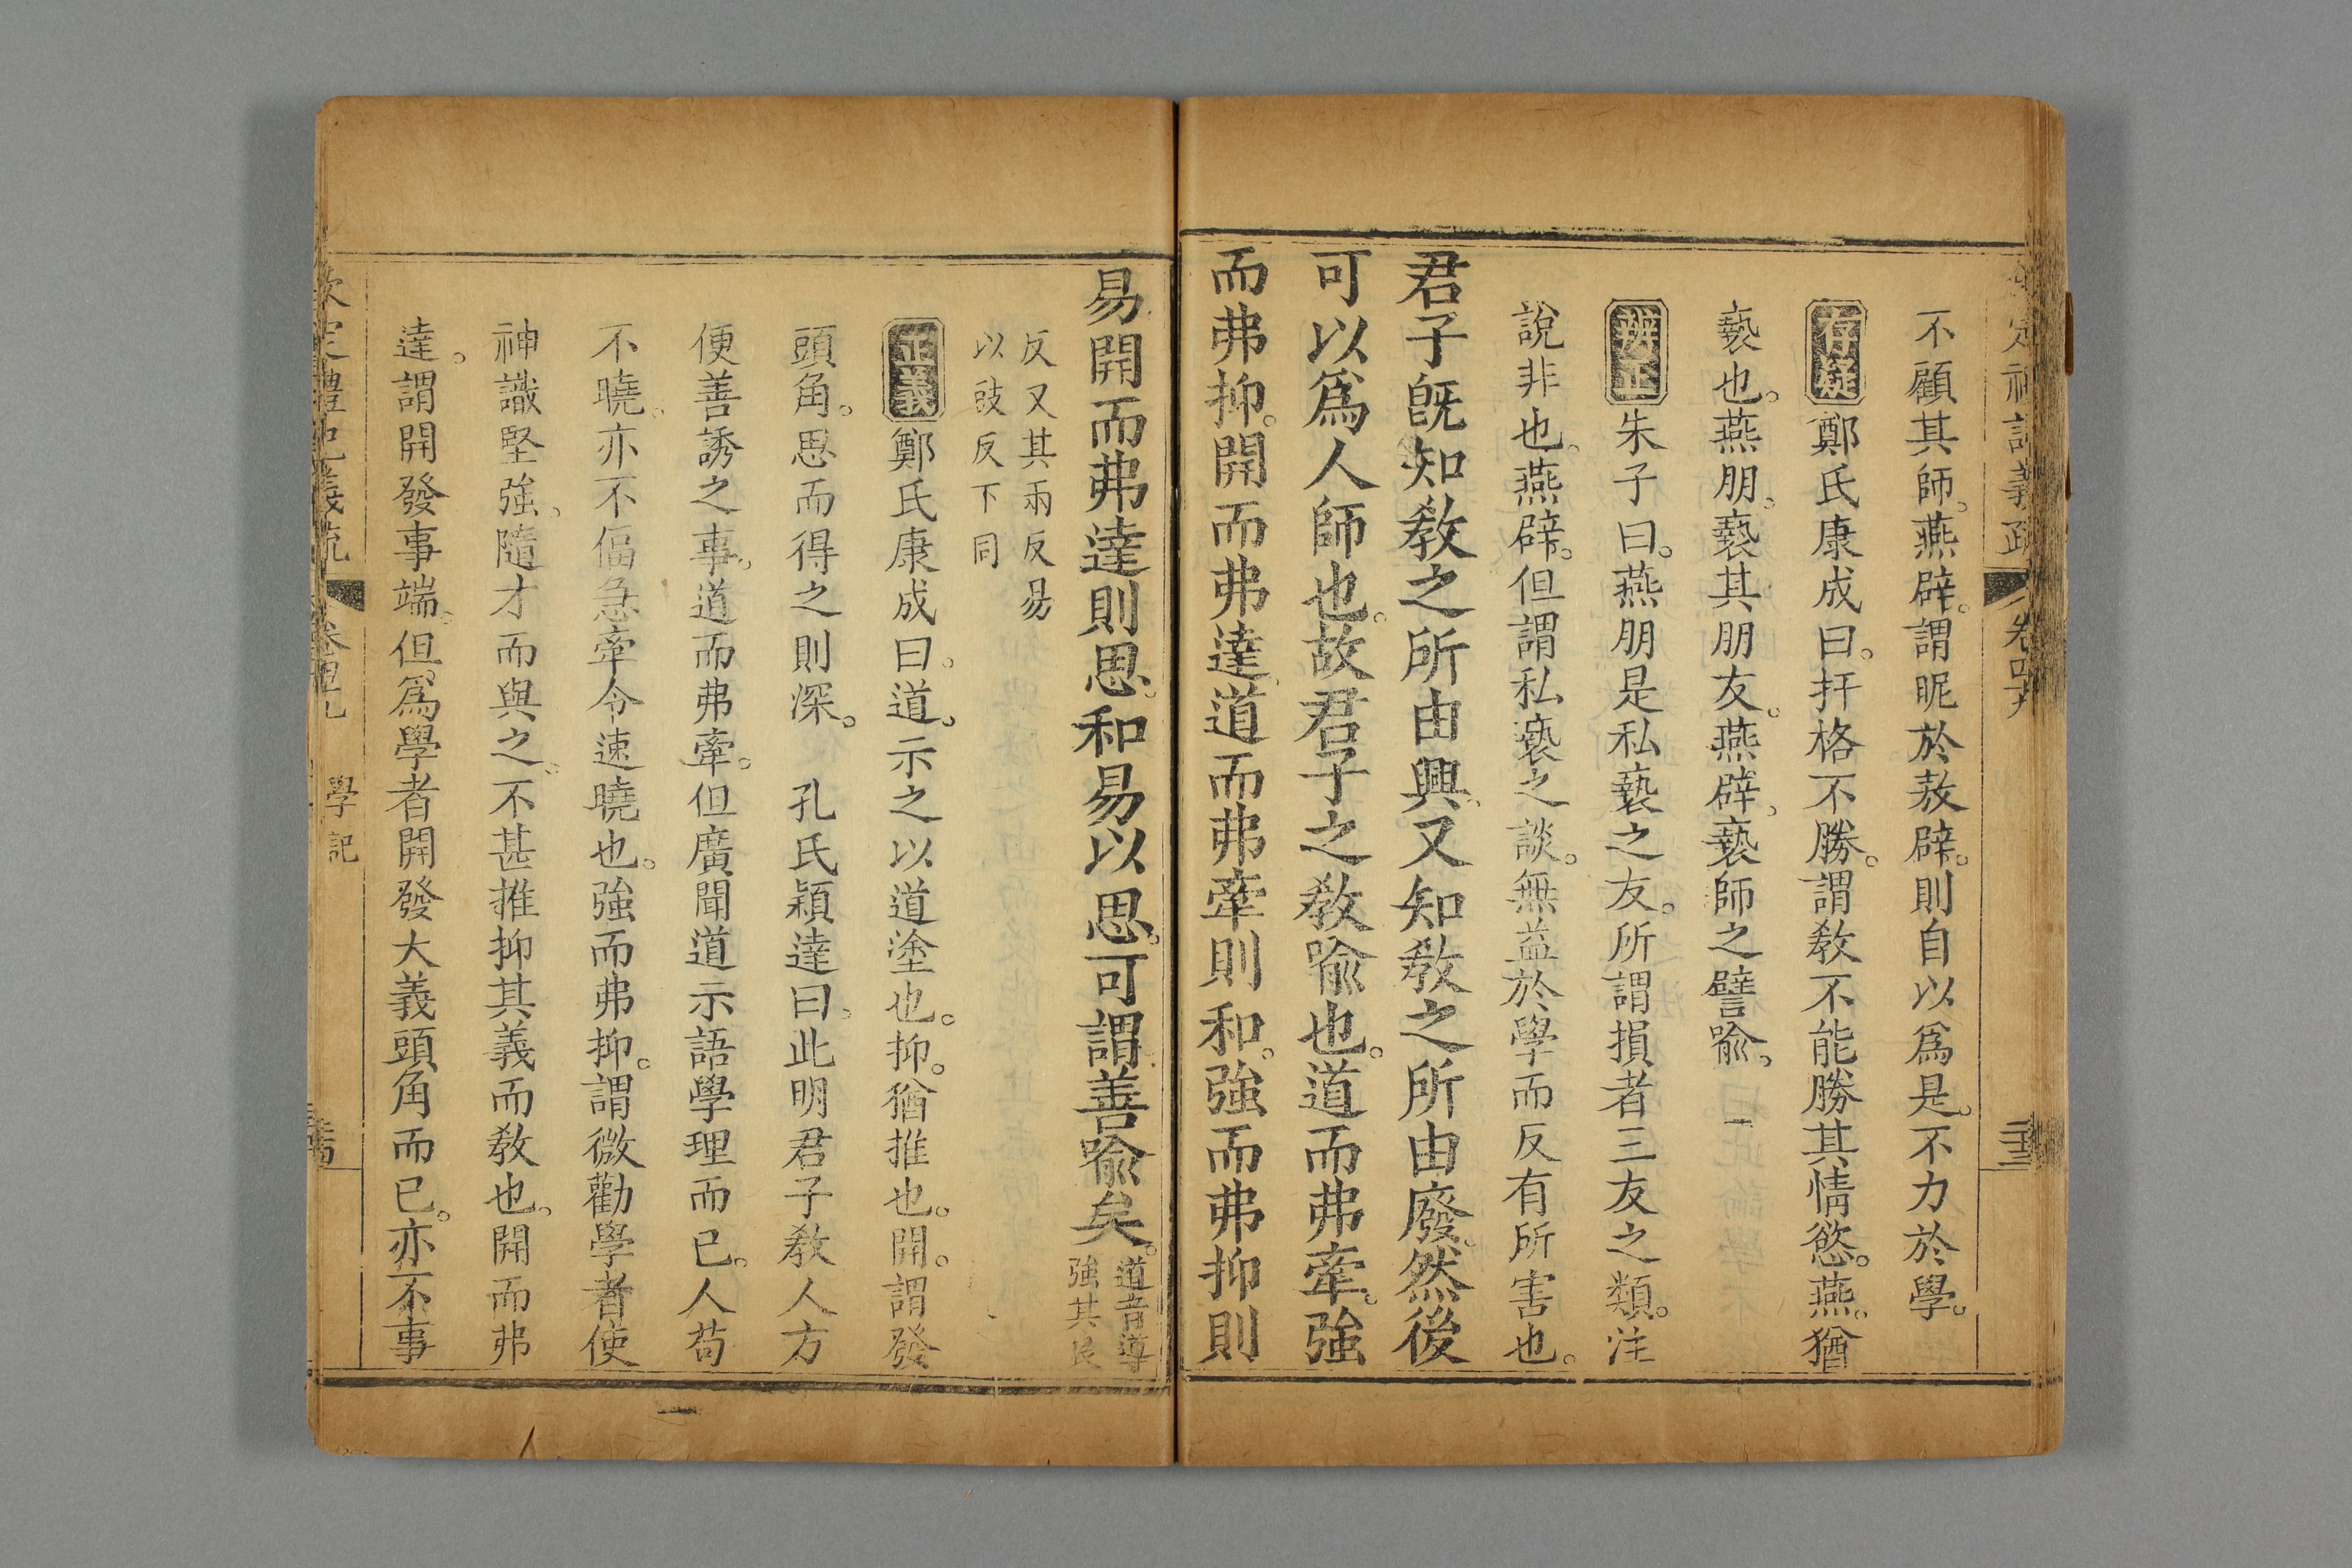 不顧其師。燕辟。謂昵於敖辟。則自以為是。不力於學。
存疑 鄭氏康成曰。扞格不勝。謂敎不能勝其情慾。燕。猶
褻也。燕朋。褻其朋友。燕辟。褻師之譬喻。
辨正 朱子曰。燕朋是私褻之友。所謂損者三友之類。注
說非也。燕辟。但謂私褻之談。無益於學而反有所害也。
君子旣知敎之所由興。又知敎之所由廢。然後
可以爲人師也。故君子之敎喩也。道而弗牽。強
而弗抑。開而弗達。道而弗牽則和。強而弗抑則
易。開而弗達則思。和易以思。可謂善喩矣。道音導
強其良
反又其兩反易
以豉反下同
正義 鄭氏康成曰。道。示之以道塗也。抑。猶推也。開。謂發
頭角。思而得之則深。 孔氏穎達曰。此明君子敎人方
便善誘之事。道而弗牽。但廣聞道示語學理而已。人苟
不曉。亦不偪急牽令速曉也。強而弗抑。謂微勸學者使
神識堅強。隨才而與之。不甚推抑其義而敎也。開而弗
達。謂開發事端。但為學者開發大義頭角而已。亦不事
欽定禮記義疏 卷四九 學記